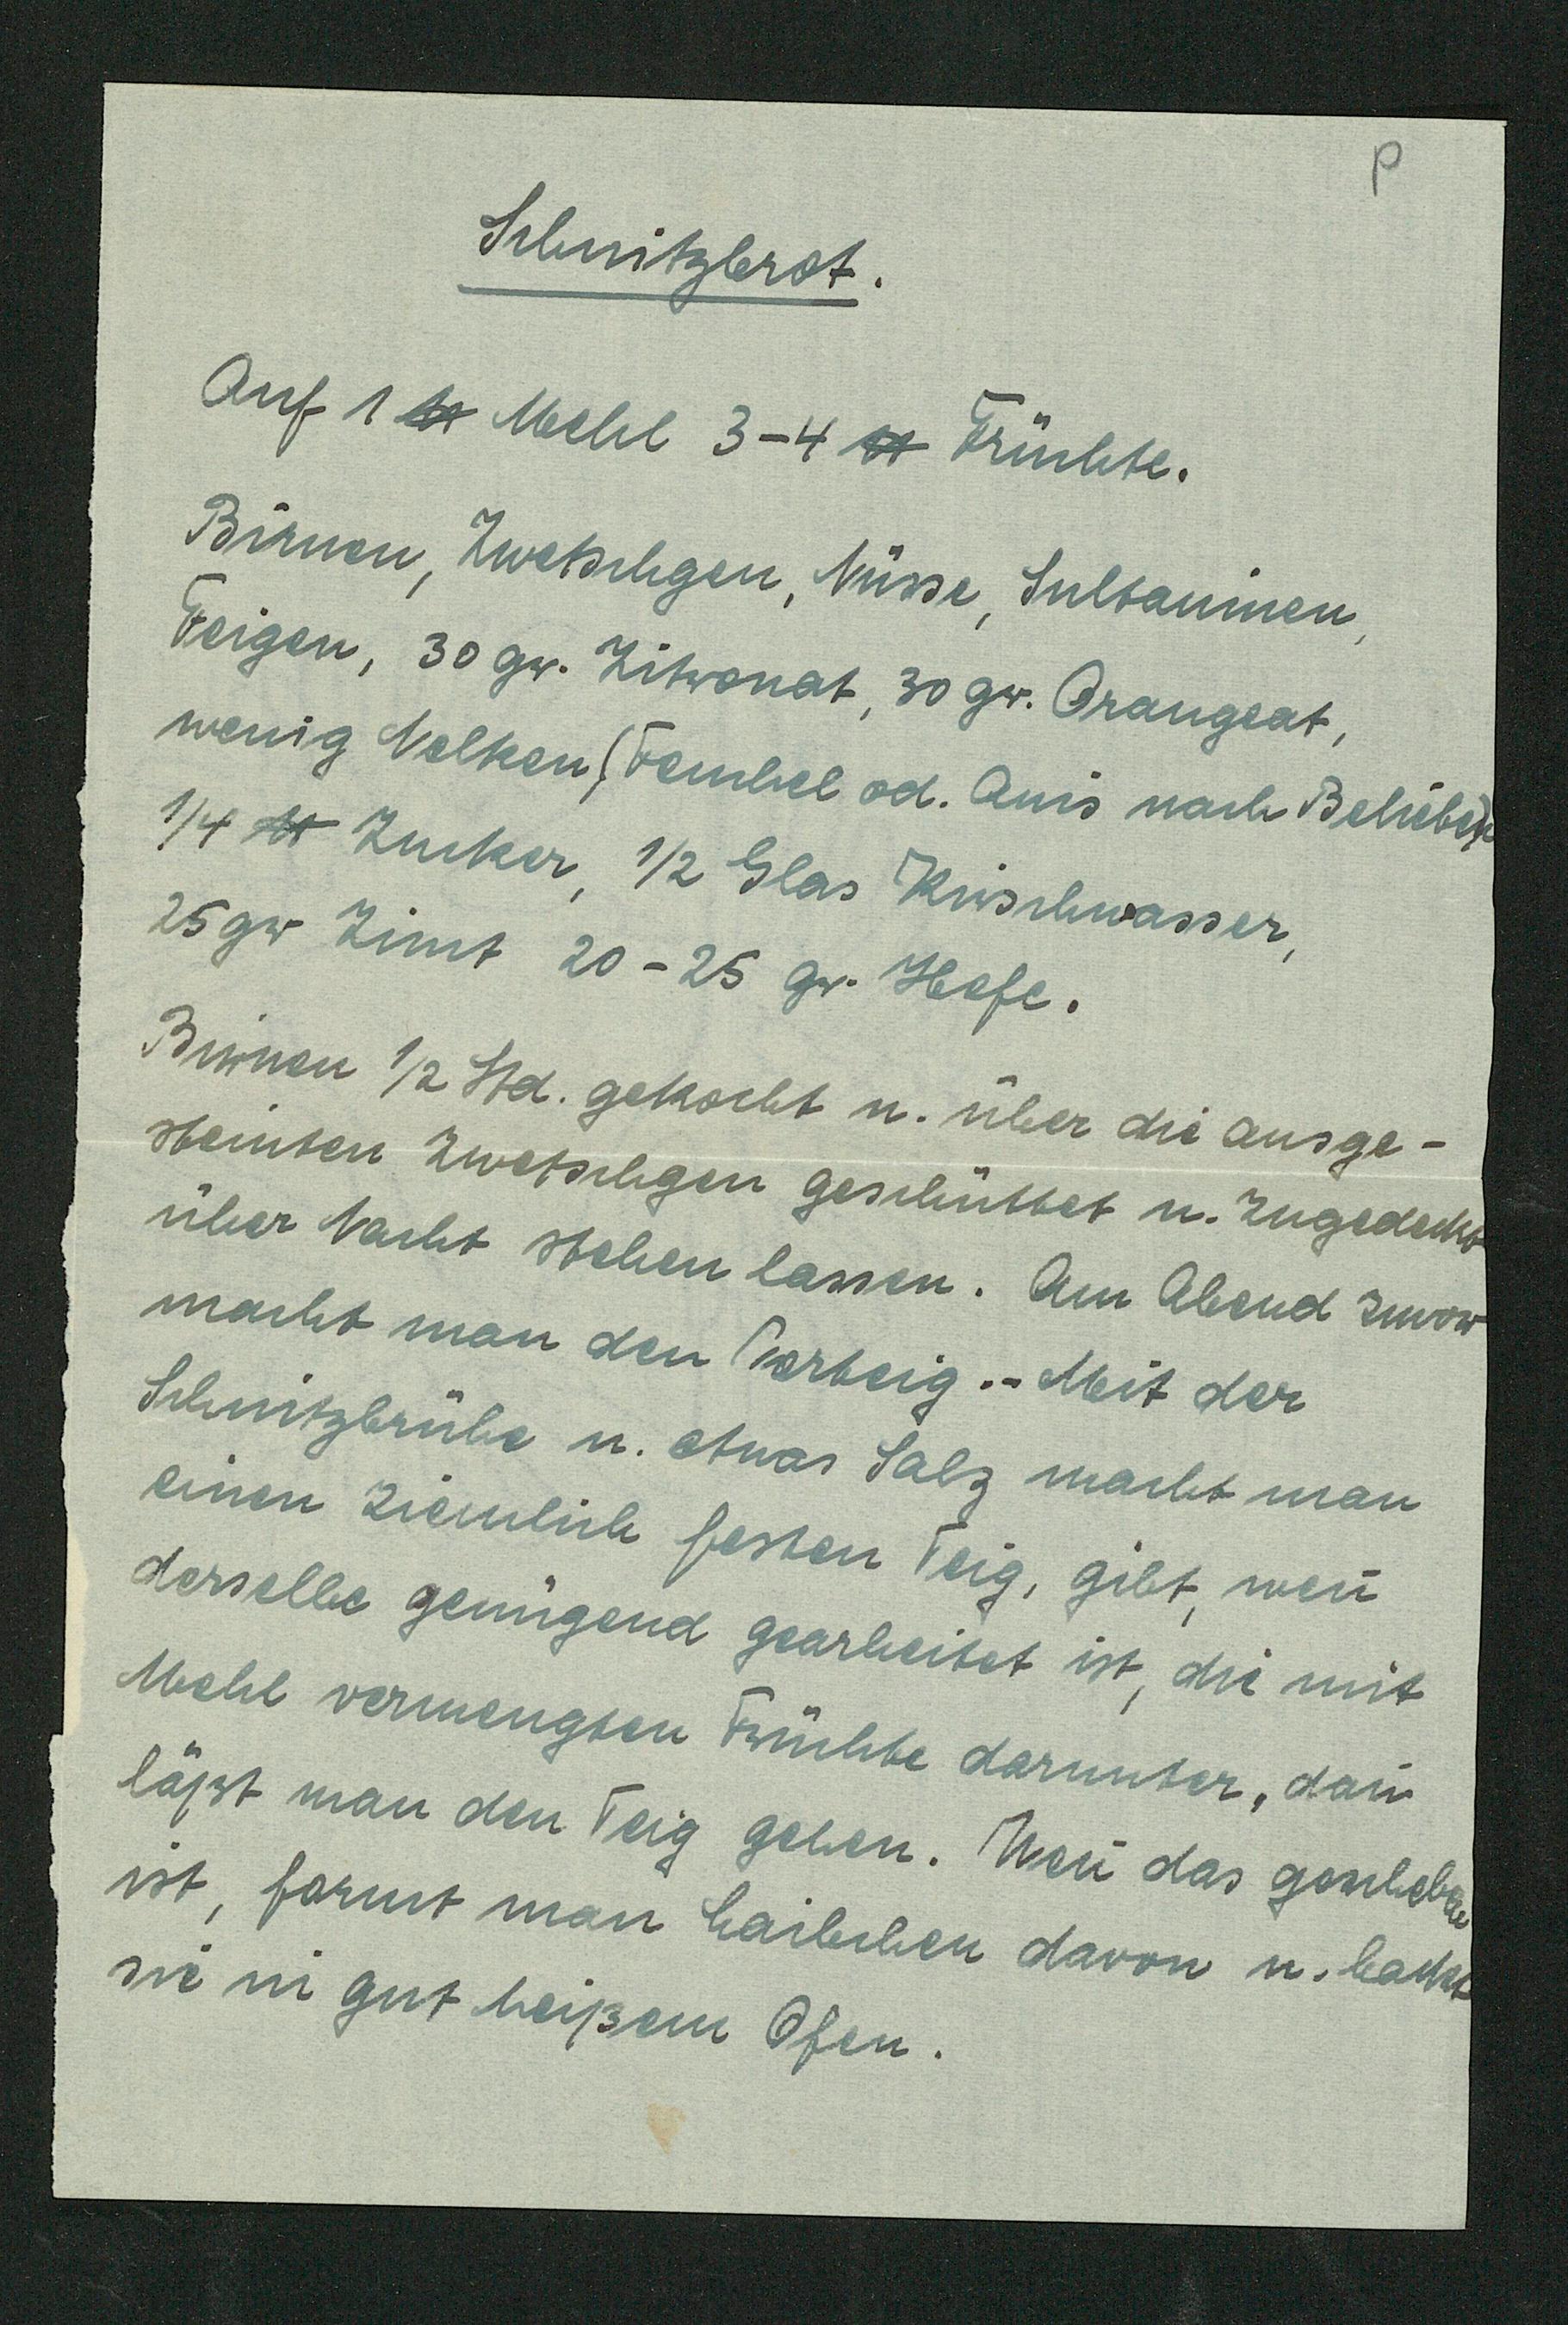 P
Schnitzbrot.
Auf 1 ℔ Mehl 3-4 ℔ Früchte.
Birnen, Zwetschgen, Nüsse, Sultaninen,
Feigen, 30 gr. Zitronat, 30 gr. Orangeat,
wenig Nelken, (Fenchel od. Anis nach Belieben)
1/4 ℔ Zucker, 1/2 Glas Kirschwasser,
25 gr Zimt 20-25 gr. Hefe.
Birnen 1/2 Std. gekocht u. über die ausge-
steinten Zwetschgen geschüttet u. zugedeckt
über Nacht stehen lassen. Am Abend zuvor
macht man den Vorteig.- Mit der
Schnitzbrühe u. etwas Salz macht man
einen ziemlich festen Teig, gibt, wen̄
derselbe genügend gearbeitet ist, die mit
Mehl vermengten Früchte darunter, dan̄
läßt man den Teig gehen. Wen̄ das geschehen
ist, formt man Laibchen davon u. backt
sie in gut heißem Ofen.